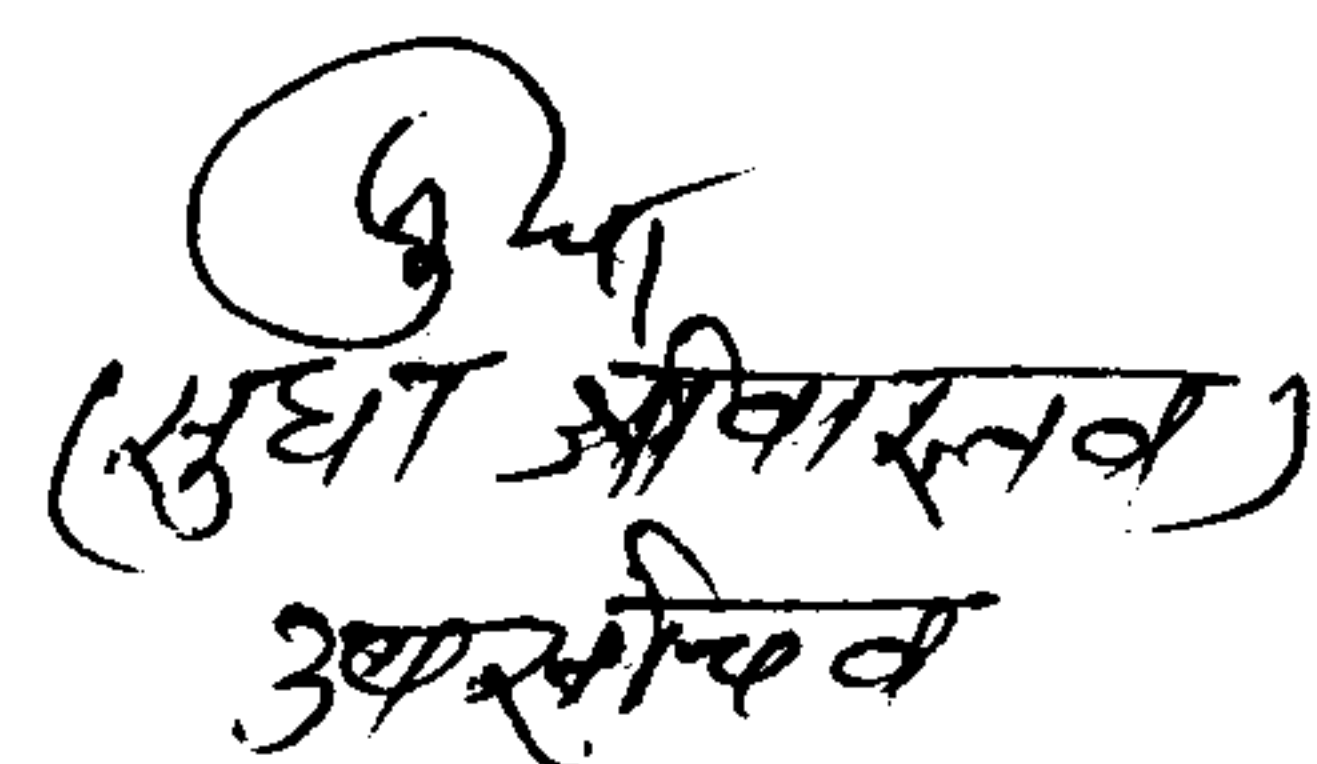 सुधा
(सुधा श्रीवास्तव)
उप सचिव